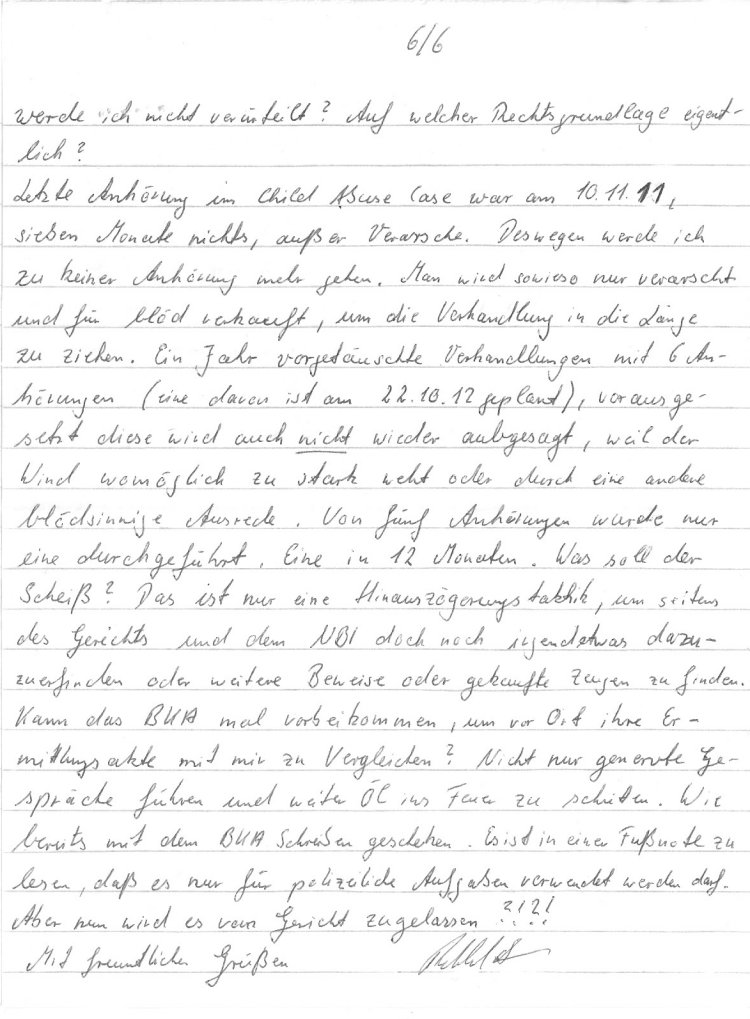 6/6
werde ich nicht verurteilt? Auf welcher Rechtsgrundlage eigent-
lich?
Letzte Anhörung im Child Abuse Case war am 10.11.11,
sieben Monate nichts, außer Verarsche. Deswegen werde ich
zu keiner Anhörung mehr gehen. Man wird sowieso nur verarscht
und für blöd verkauft, um die Verhandlung in die Länge
zu ziehen. Ein Jahr vorgetäuschte Verhandlungen mit 6 An-
hörungen (eine davon ist am 22.10.12 geplant), vorausge-
setzt diese wird auch nicht wieder abgesagt, weil der
Wind womöglich zu stark weht oder durch eine andere
blödsinnige Ausrede. Von fünf Anhörungen wurde nur
eine durchgeführt. Eine in 12 Monaten. Was soll der
Scheiß? Das ist nur eine Hinauszögerungstaktik, um seitens
des Gerichts und dem NBI doch noch irgendetwas dazu-
zuerfinden oder weitere Beweise oder gekaufte Zeugen zu finden.
Kann das BKA mal vorbeikommen, um vor Ort ihre Er-
mittlungsakte mit mir zu Vergleichen? Nicht nur genervte Ge-
spräche führen und weiter Öl ins Feuer zu schütten. Wie
bereits mit dem BKA Schreiben geschehen. Es ist in einer Fußnote zu
lesen, daß es nur für polizeiliche Aufgaben verwendet werden darf.
Aber nun wird es vom Gericht zugelassen ?!?!
Mit freundlichen Grüßen